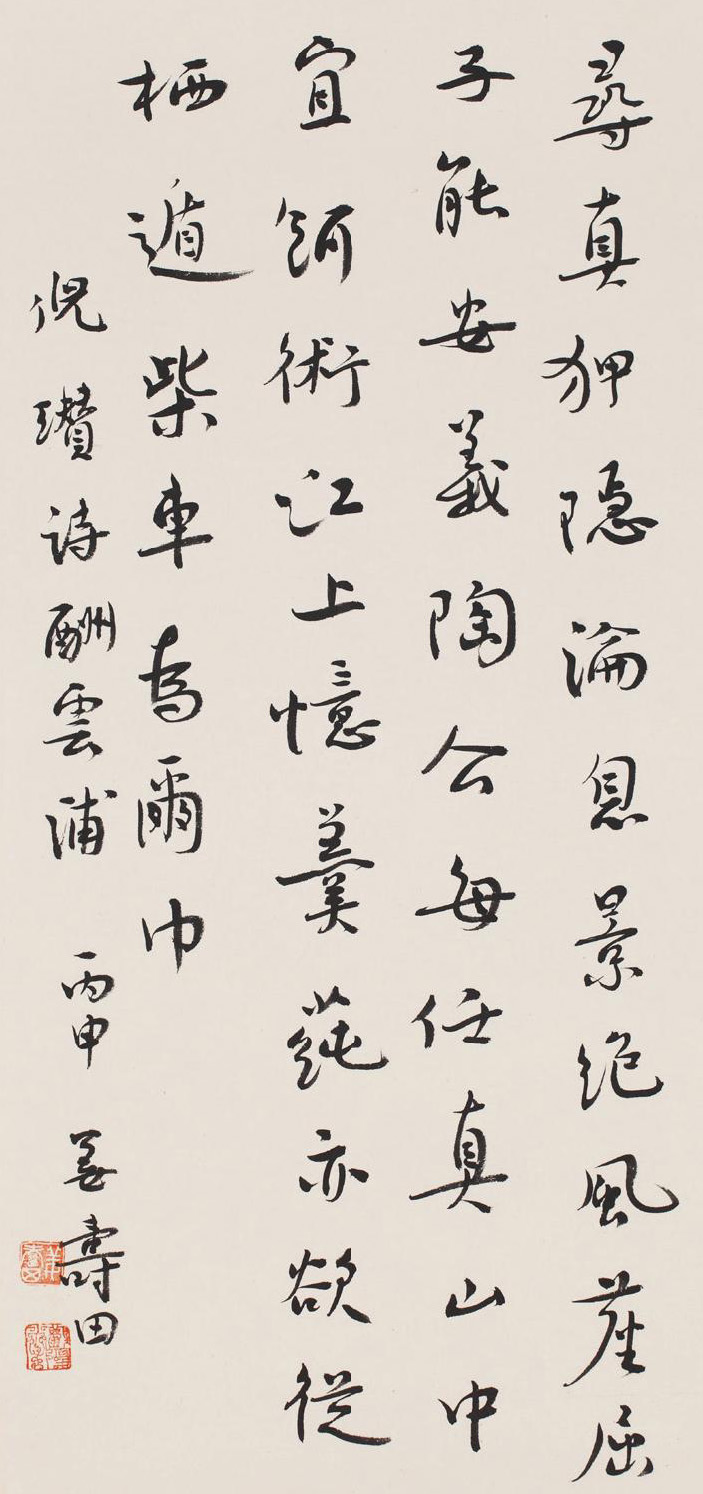 尋真狎隱淪息景絕風塵屈
子能安義陶公每任真山中
宜飼術江上憶羹蒓亦欲從
栖遁柴車為爾巾
倪瓚詩酬雲浦 丙申 姜壽田